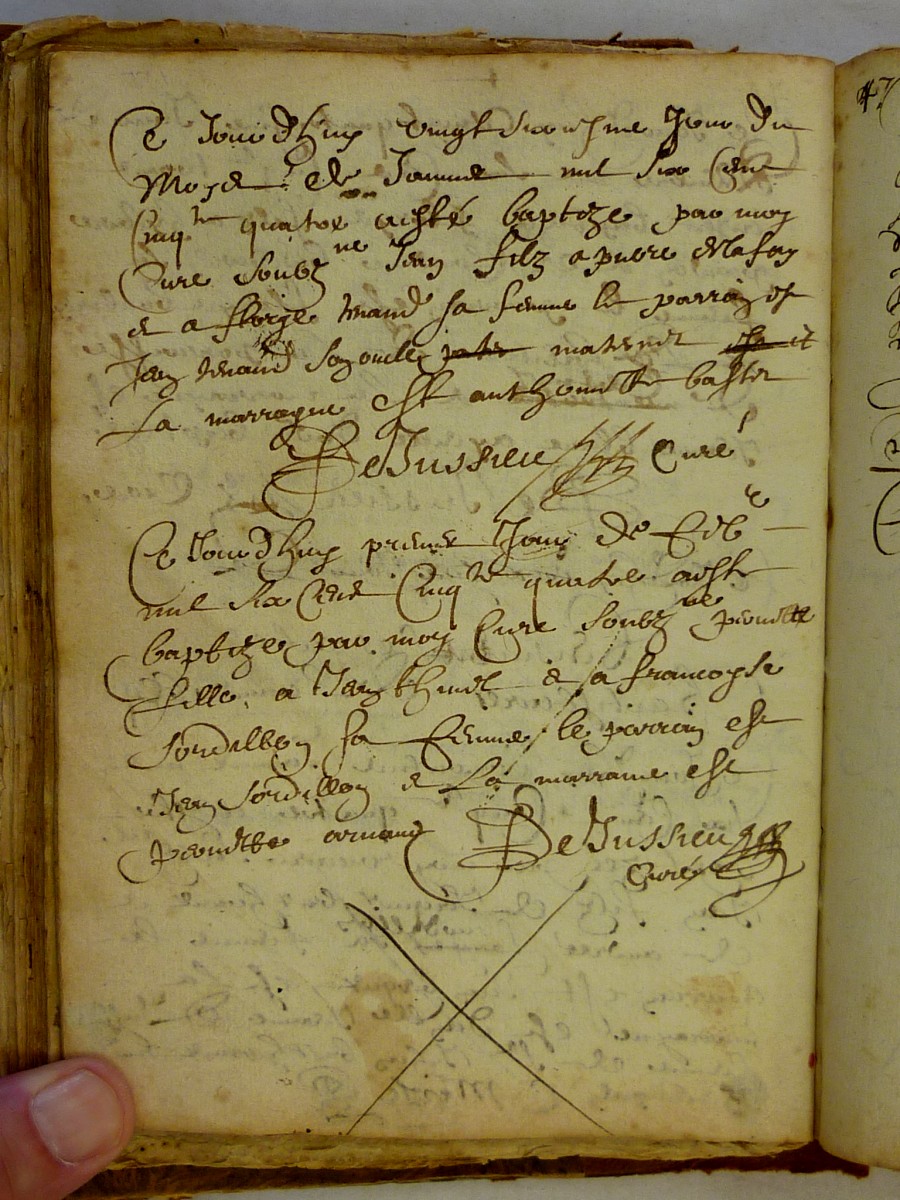 Ce Jourdhuy vingt sixiesme Jour du
Moys de Janvier mil six Cens
Cinq.te quatre a esté baptize par moy
Cure soubz.ne Jean filz a pierre
et a sa femme le parrain est
Jean son oncle maternel et
La marrayne est anthoinette
DeJussieu Curé
Ce Jourdhuy premier Jour de Feb.e
mil six Cens Cinq.te quatre a esté
baptize par moy Cure soubz.ne pernette
fille a Jean et a francoyse
Sordillon sa femme le parrain est
Jean Sordillon et La marraine est
pernette
DeJussieu
Curé
47